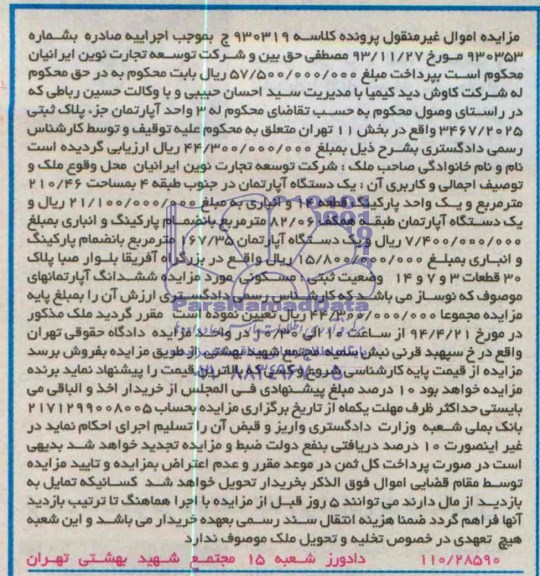 مزایده اموال غیرمنقول پرونده کلاسه ۹۳۰۳۱۹ ج بموجب اجراییه صادره بشماره
۹۳۰۳۵۳ مورخ ۹۳/۱۱/۲۷ مصطفی حق بین و شرکت توسعه تجارت نوین ایرانیان
محکوم است بپرداخت مبلغ ۵۷/۵۰۰/۰۰۰/۰۰۰ ریال بابت محکوم به در حق محکوم
له شرکت کاوش دید کیمیا با مدیریت سید احسان حبیبی و با وکالت حسین رباطی که
در راستای وصول محکوم به حسب تقاضای محکوم له ۳ واحد آپارتمان جزء پلاک ثبتی
۳۴۶۷/۲۰۲۵ واقع در بخش ۱۱ تهران متعلق به محکوم علیه توقیف و توسط کارشناس
رسمی دادگستری بشرح ذیل بمبلغ ۴۴/۳۰۰/۰۰۰/۰۰۰ ریال ارزیابی گردیده است
نام و نام خانوادگی صاحب ملک : شرکت توسعه تجارت نوین ایرانیان محل وقوع ملک و
توصیف اجمالی و کاربری آن : یک دستگاه آپارتمان در جنوب طبقه ۴ بمساحت ۲۱۰/۴۶
مترمربع و یک واحد پارکینگ قطعه ۱۴ و انباری به مبلغ ۲۱/۱۰۰/۰۰۰/۰۰۰ ریال و
یک دستگاه آپارتمان طبقه همکف ۸۲/۰۶ مترمربع بانضمام پارکینگ و انباری بمبلغ
۷/۴۰۰/۰۰۰/۰۰۰ ریال و یک دستگاه آپارتمان ۱۶۷/۳۵ مترمربع بانضمام پارکینگ
و انباری بمبلغ ۱۵/۸۰۰/۰۰۰/۰۰۰ ریال واقع در بزرگراه آفریقا بلوار صبا پلاک
۳۰ قطعات ۳ و ۷ و ۱۴ وضعیت ثبتی : مسکونی مورد مزایده ششدانگ آپارتمانهای
موصوف که نوساز می باشد که کارشناس رسمی دادگستری ارزش آن را بمبلغ پایه
مزایده مجموعا ۴۴/۳۰۰/۰۰۰/۰۰۰ ریال تعیین نموده است مقرر گردید ملک مذکور
در مورخ ۹۴/۴/۲۱ از ساعت ۱۰ الی ۱۰/۳۰ در واحد مزایده دادگاه حقوقی تهران
واقع در خ سپهبد قرنی نبش سمیه مجتمع شهید بهشتی از طریق مزایده بفروش برسد
مزایده از قیمت پایه کارشناسی شروع و کسی که بالاترین قیمت را پیشنهاد نماید برنده
مزایده خواهد بود ۱۰ درصد مبلغ پیشنهادی فی المجلس از خریدار اخذ و الباقی می
بایستی حداکثر ظرف مهلت یکماه از تاریخ برگزاری مزایده بحساب ۲۱۷۱۲۹۹۰۰۸۰۰۵
بانک ملی شعبه وزارت دادگستری واریز و قبض آن را تسلیم اجرای احکام نماید در
غیر اینصورت ۱۰ درصد دریافتی بنفع دولت ضبط و مزایده تجدید خواهد شد بدیهی
است در صورت پرداخت کل ثمن در موعد مقرر و عدم اعتراض بمزایده و تایید مزایده
توسط مقام قضایی اموال فوق الذکر بخریدار تحویل خواهد شد کسانیکه تمایل به
بازدید از مال دارند می توانند ۵ روز قبل از مزایده با اجرا هماهنگ تا ترتیب بازدید
آنها فراهم گردد ضمنا هزینه انتقال سند رسمی بعهده خریدار می باشد و این شعبه
هیچ تعهدی در خصوص تخلیه و تحویل ملک موصوف ندارد
۱۱۰/۲۸۵۹۰ دادورز شعبه ۱۵ مجتمع شهید بهشتی تهران
ParsNamadData